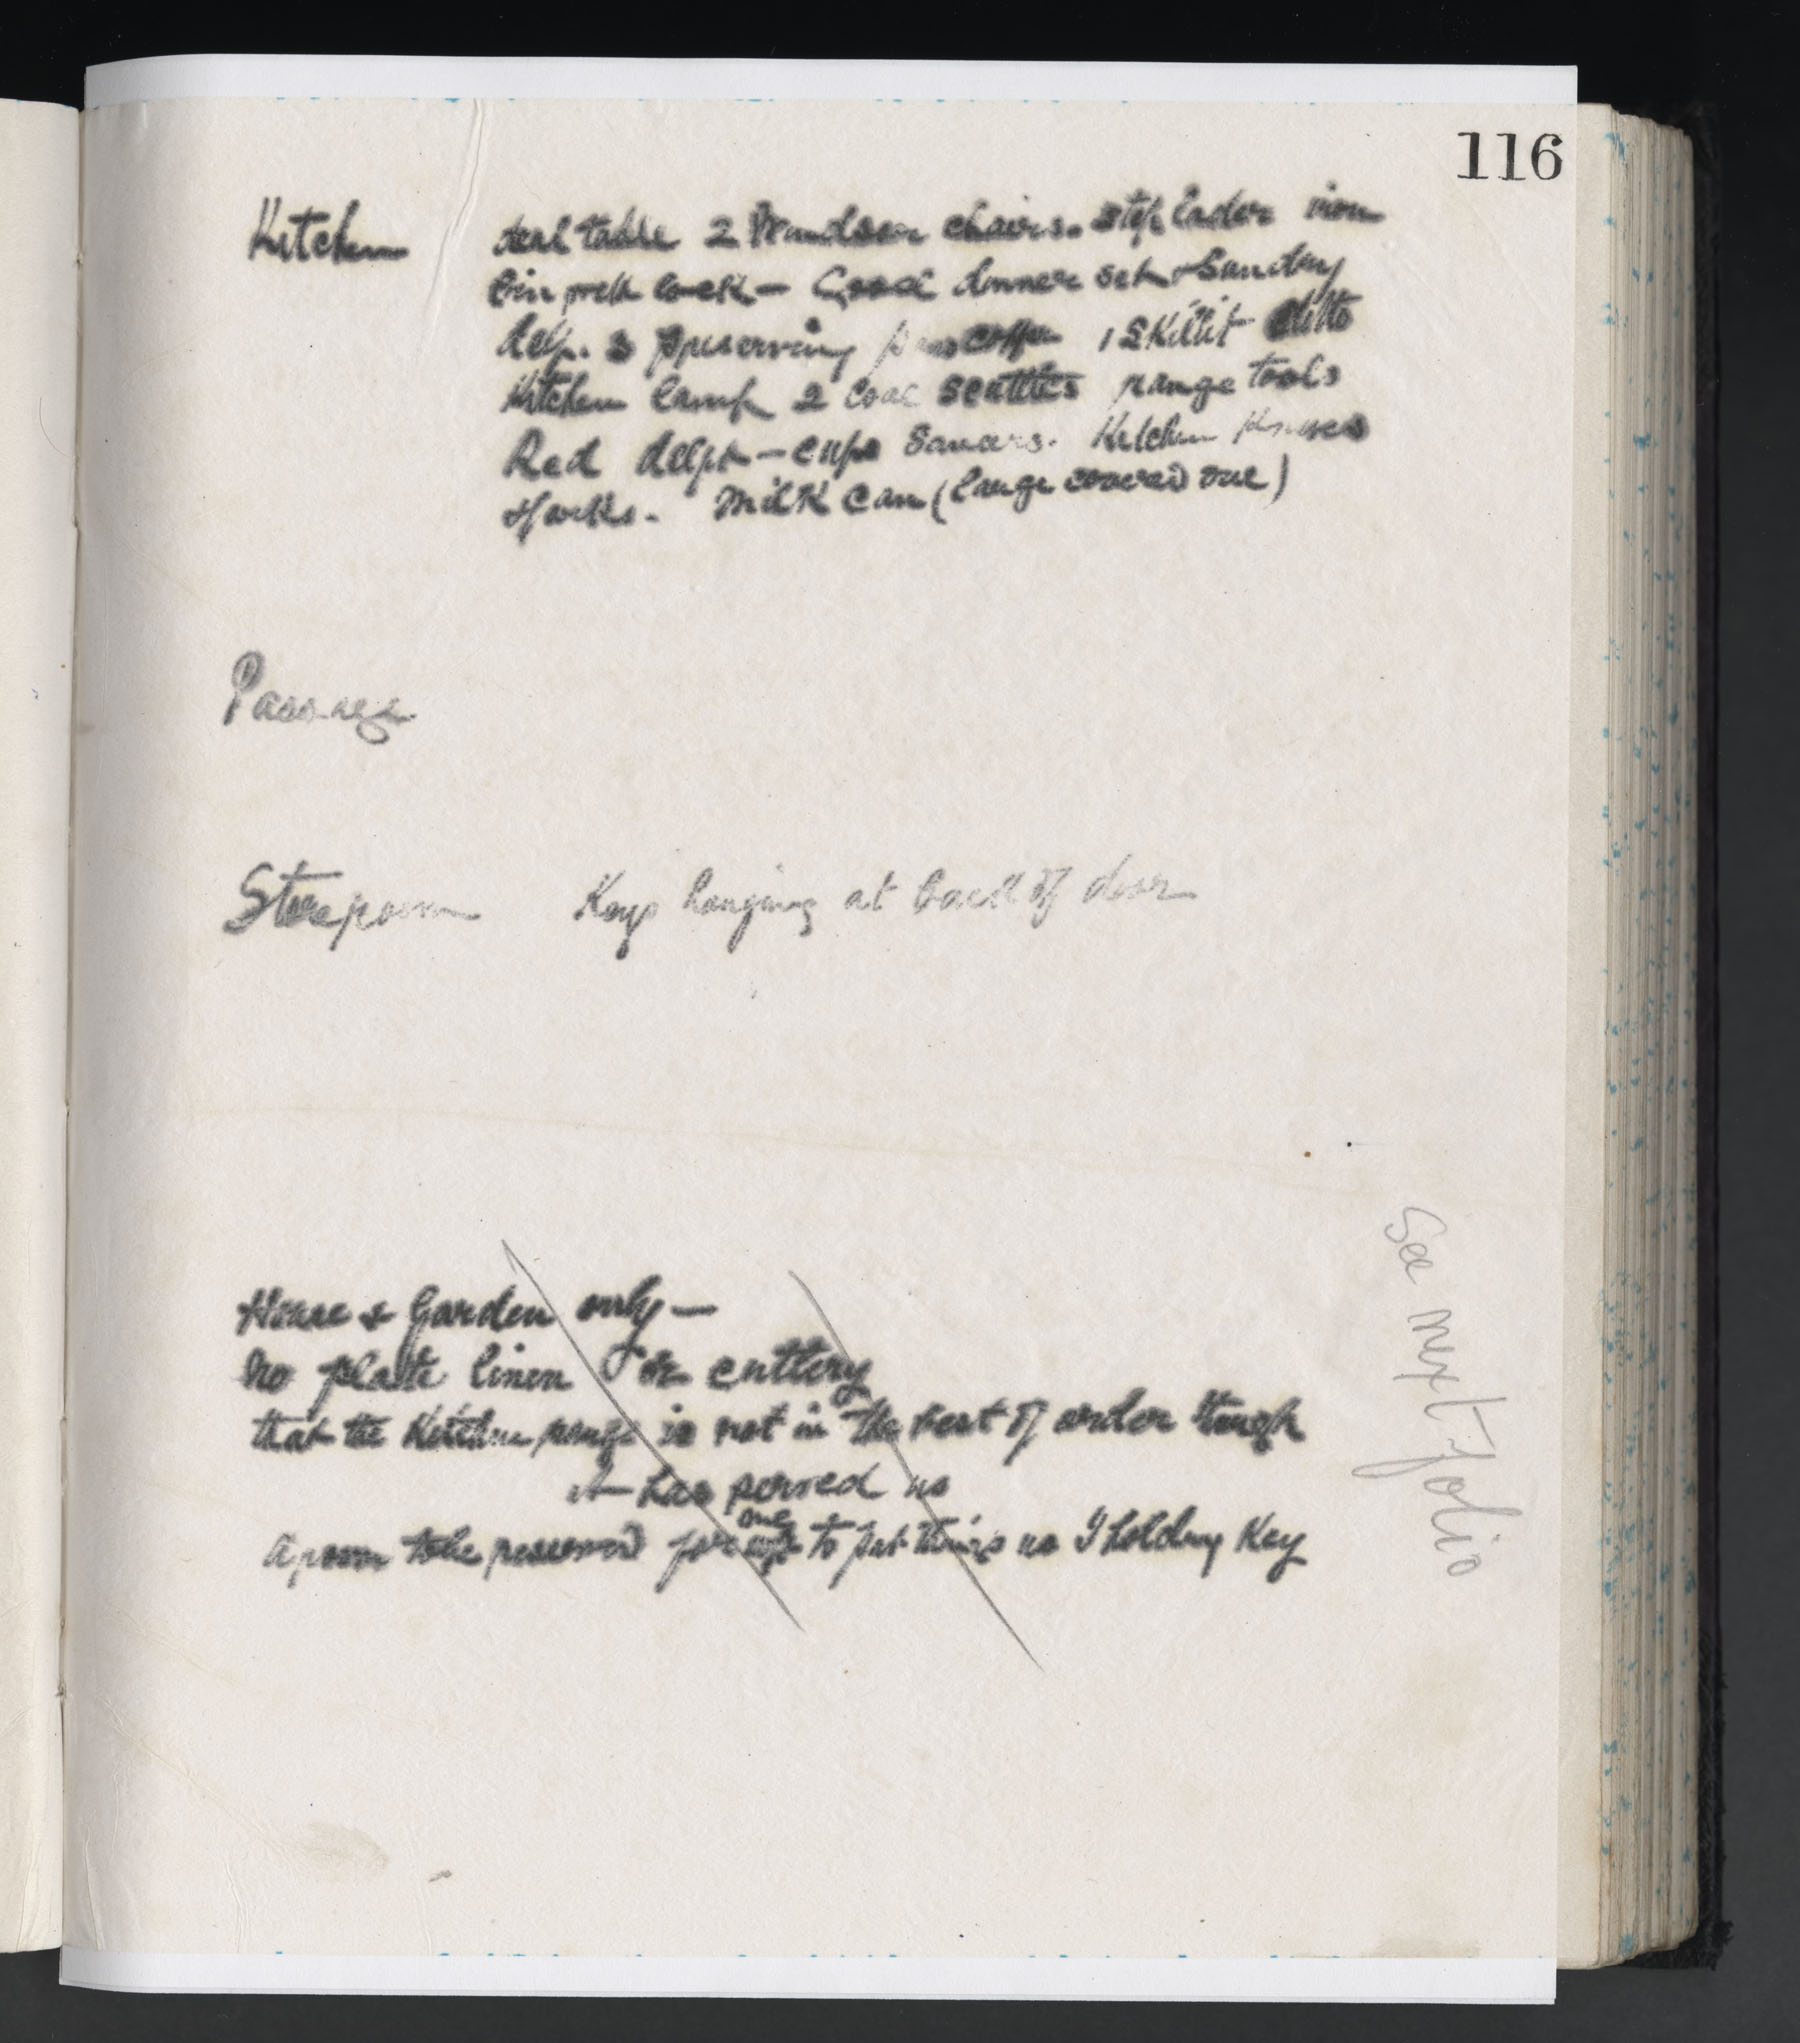 116
Kitchen deal table 2 Windsor chairs. step lader iron
bin with lock - Good dinner set & Sunday
delp. 3 preserving pans copper 1 Skillit ditto
Kitchen lamp 2 Coal scuttles range tools
Red delpt - cups Saucers. Kitchen Knives
& forks. Milk Can (large covered one)
Passage
Storeroom Keys hanging at back of door
House & Garden only -
No plate linen or cutlery
that the Kitchen range is not in the best of order though
it has served us
A room to be reserved for me to put things us I holding Key
See next folio